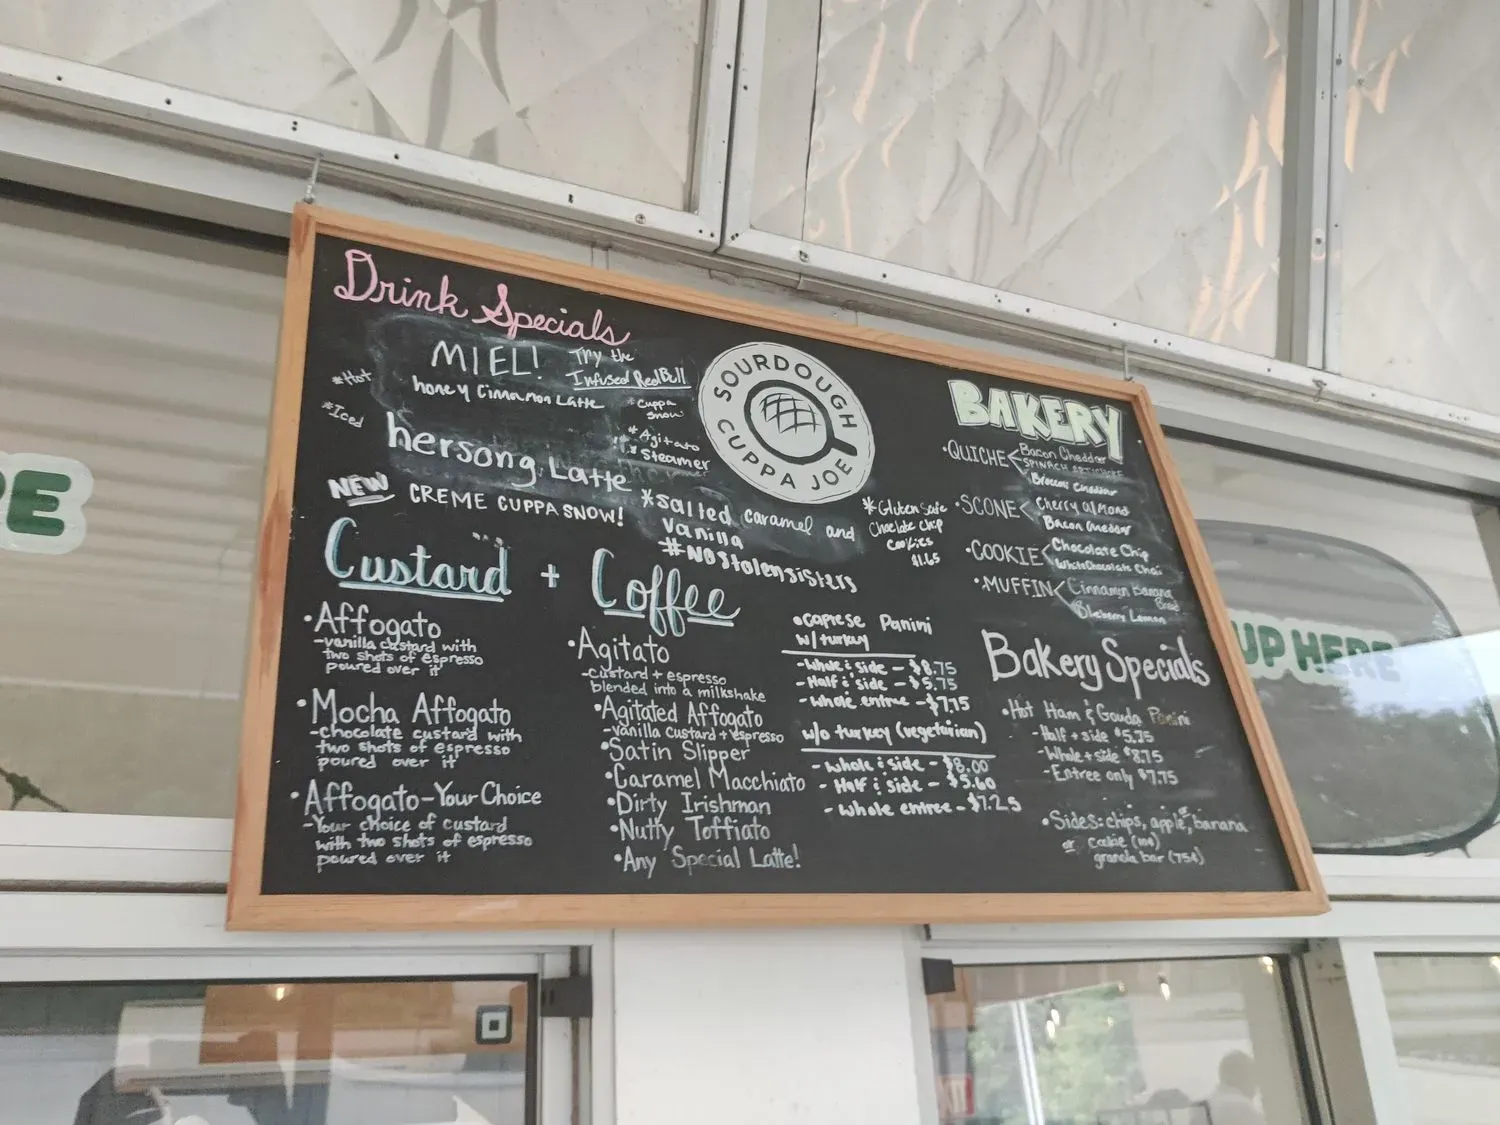 Drink Specials
*Hot
*Iced
MIEL!
honey Cinnamon Latte
Try the
Infused RedBull
*Cuppa
Snow
*Agitato
*Steamer
hersong Latte
NEW CREME CUPPA SNOW!
*salted caramel and
vanilla
#NOStolensisters
SOURDOUGH
CUPPA JOE
*Gluten Safe
Choclate Chip
Cookies
BAKERY
•QUICHE
Bacon Cheddar
SPINACH ARTICHOKE
Broccoli Cheddar
•SCONE
Cherry almond
Bacon Cheddar
•COOKIE
Chocolate Chip
White Chocolate Chai
•MUFFIN
Cinnamon Banana
Bread
Blueberry Lemon
Custard + Coffee
•Affogato
-vanilla custard with
two shots of espresso
poured over it
•Mocha Affogato
-chocolate custard with
two shots of espresso
poured over it
•Affogato-Your Choice
-Your choice of custard
with two shots of espresso
poured over it
•Agitato
-custard + espresso
blended into a milkshake
•Agitated Affogato
-vanilla custard + espresso
•Satin Slipper
•Caramel Macchiato
•Dirty Irishman
•Nutty Toffiato
•Any Special Latte!
•caprese Panini
w/ turkey
-whole & side - $8.75
-Half & side - $5.75
-whole entree - $7.75
w/o turkey (vegetarian)
-whole & side - $8.00
-Half & side - $5.60
-whole entree - $7.25
Bakery Specials
•Hot Ham & Gouda Panini
-Half + side $5.75
-Whole + side $8.75
-Entree only $7.75
•Sides: chips, apple, banana
or cookie (100)
granola bar (75¢)
RE
UP HERE